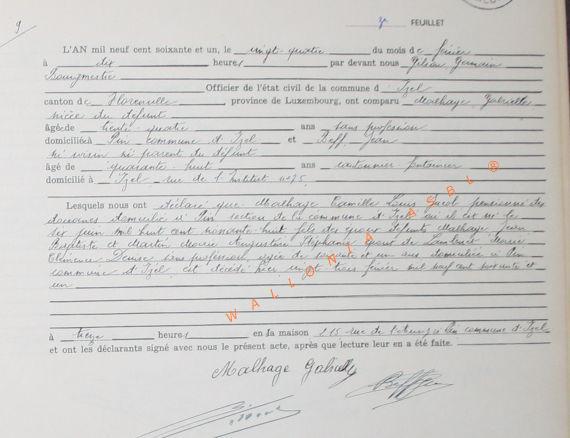 9
2e FEUILLET
L'AN mil neuf cent soixante et un, le vingt-quatre du mois de février
à dix heures par devant nous Gilian Germain
Bourgmestre
Officier de l'état civil de la commune d'Izel
canton de Florenville, province de Luxembourg, ont comparu Malhage Gabrielle
nièce du défunt
âgée de trente-quatre ans sans profession
domiciliée à Pin commune d'Izel et Beff Jean
ni voisin ni parent du défunt
âgé de quarante-huit ans cantonnier
domicilié à Izel, rue de l'Institut n° 75
Lesquels nous ont déclaré que Malhage Camille Louis pensionné des
douanes domicilié à Pin section de la commune d'Izel où il est né le
six juin mil huit cent nonante-huit fils des époux défunts Malhage Jean
Baptiste et Martin Marie Augustine Stéphanie époux de Lambert Marie
Clémence Denise sans profession, âgée de soixante et un ans domiciliée à Pin
commune d'Izel est décédé hier vingt trois février mil neuf cent soixante et
un
à treize heures en sa maison 115 rue de à Pin commune d'Izel
et ont les déclarants signé avec nous le présent acte, après que lecture leur en a été faite.
Malhage Gabrielle
WALLONIA ASBL ®